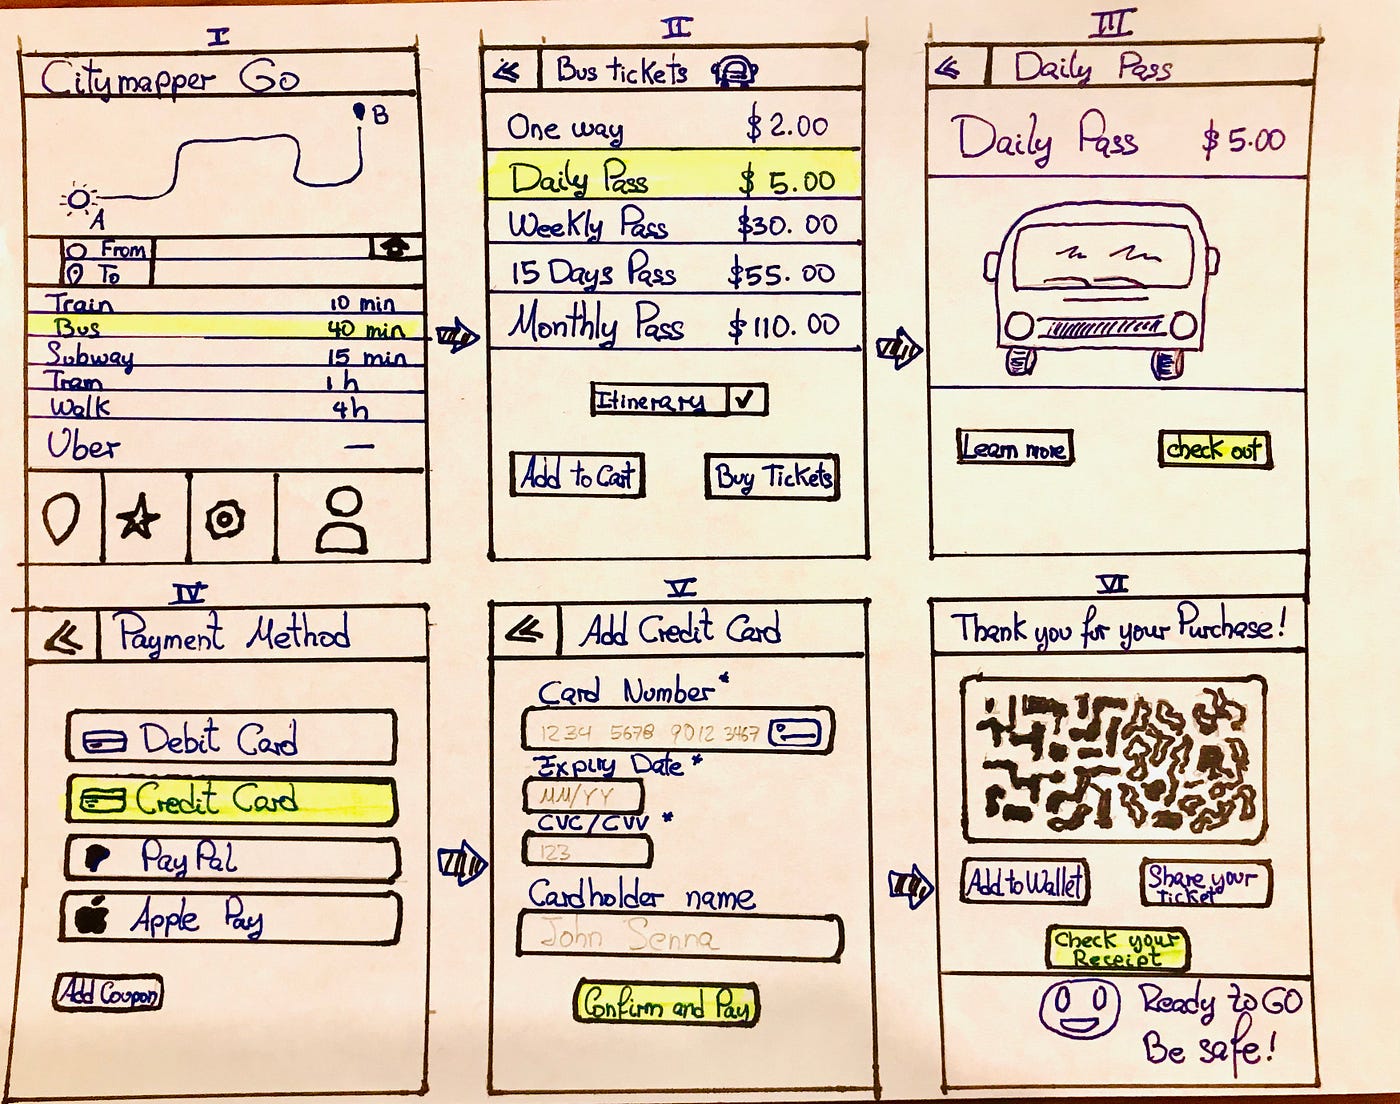 I
Citymapper Go
B
A
From
To
Train 10 min
Bus 40 min
Subway 15 min
Tram 1 h
Walk 4h
Uber —
II
Bus tickets
One way $2.00
Daily Pass $5.00
Weekly Pass $30.00
15 Days Pass $55.00
Monthly Pass $110.00
Itinerary ✓
Add to Cart Buy Tickets
III
Daily Pass
Daily Pass $5.00
Learn more check out
IV
Payment Method
Debit Card
Credit Card
PayPal
Apple Pay
Add Coupon
V
Add Credit Card
Card Number*
1234 5678 9012 3467
Expiry Date*
MM/YY
CVC/CVV *
123
Cardholder name
John Senna
Confirm and Pay
VI
Thank you for your Purchase!
Add to Wallet
Share your
Ticket
Check your
Receipt
Ready to GO
Be safe!